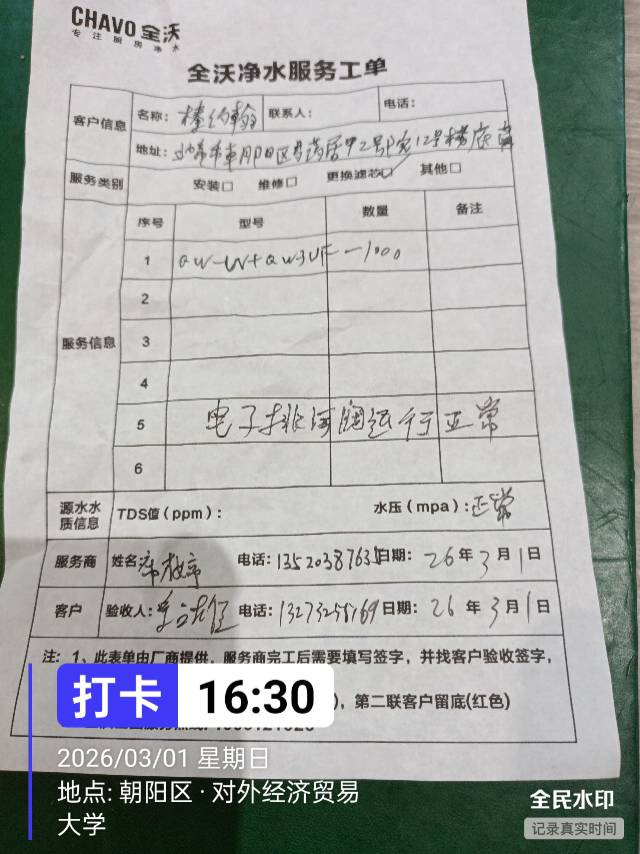 CHAVO 全沃
专注厨房净水
全沃净水服务工单
客户信息 名称: 棒约翰 联系人: 电话:
地址: 北京市朝阳区芍药居甲2号院12号楼底商
服务类别 安装☐ 维修☐ 更换滤芯☑ 其他☐
服务信息 序号 型号 数量 备注
1 QW-W+QW3UF-1000
2
3
4
5 电子排污阀运行正常
6
源水水质信息 TDS值(ppm): 水压(mpa): 正常
服务商 姓名 电话: 日期: 26年3月1日
客户 验收人: 电话: 13273258169 日期: 26年3月1日
注: 1、此表单由厂商提供,服务商完工后需要填写签字,并找客户验收签字,
),第二联客户留底(红色)
打卡 16:30
2026/03/01 星期日
地点: 朝阳区·对外经济贸易
大学
全民水印
记录真实时间